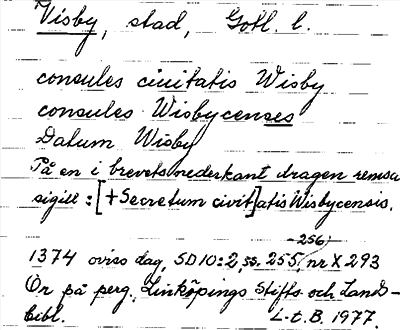 Visby, stad, Gotl. l.
consules ciuitatis Wisby
consules Wisbycenses
Datum Wisby
På en i brevets nederkant dragen remsa
sigill: [+Secretum civit]atis Wisbycensis.
-256,
1374 oviss dag, SD10:2, ss. 255, nr X 293
Or på perg., Linköpings Stifts- och Lands-
bibl. L-t. B. 1977.